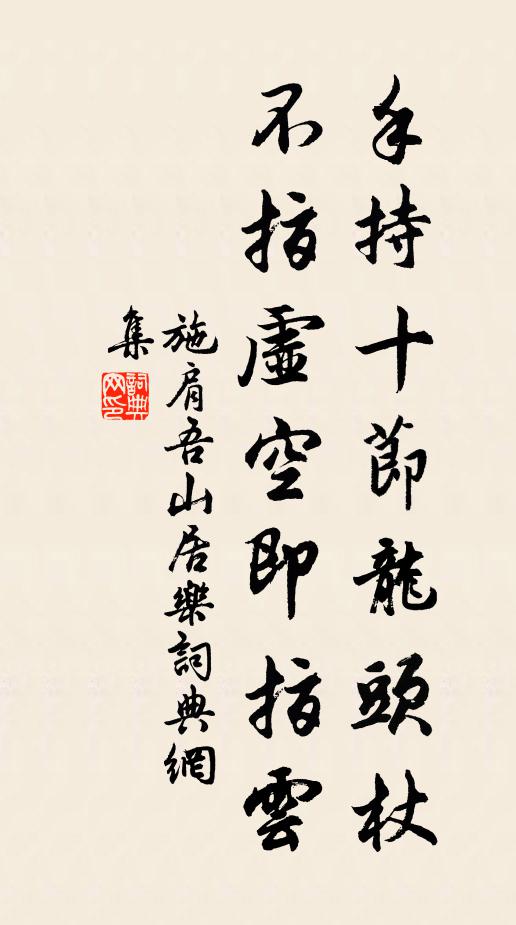 手持十節龍頭杖
不指虛空即指雲
施肩吾山居樂詞典網
集
詞典
网印